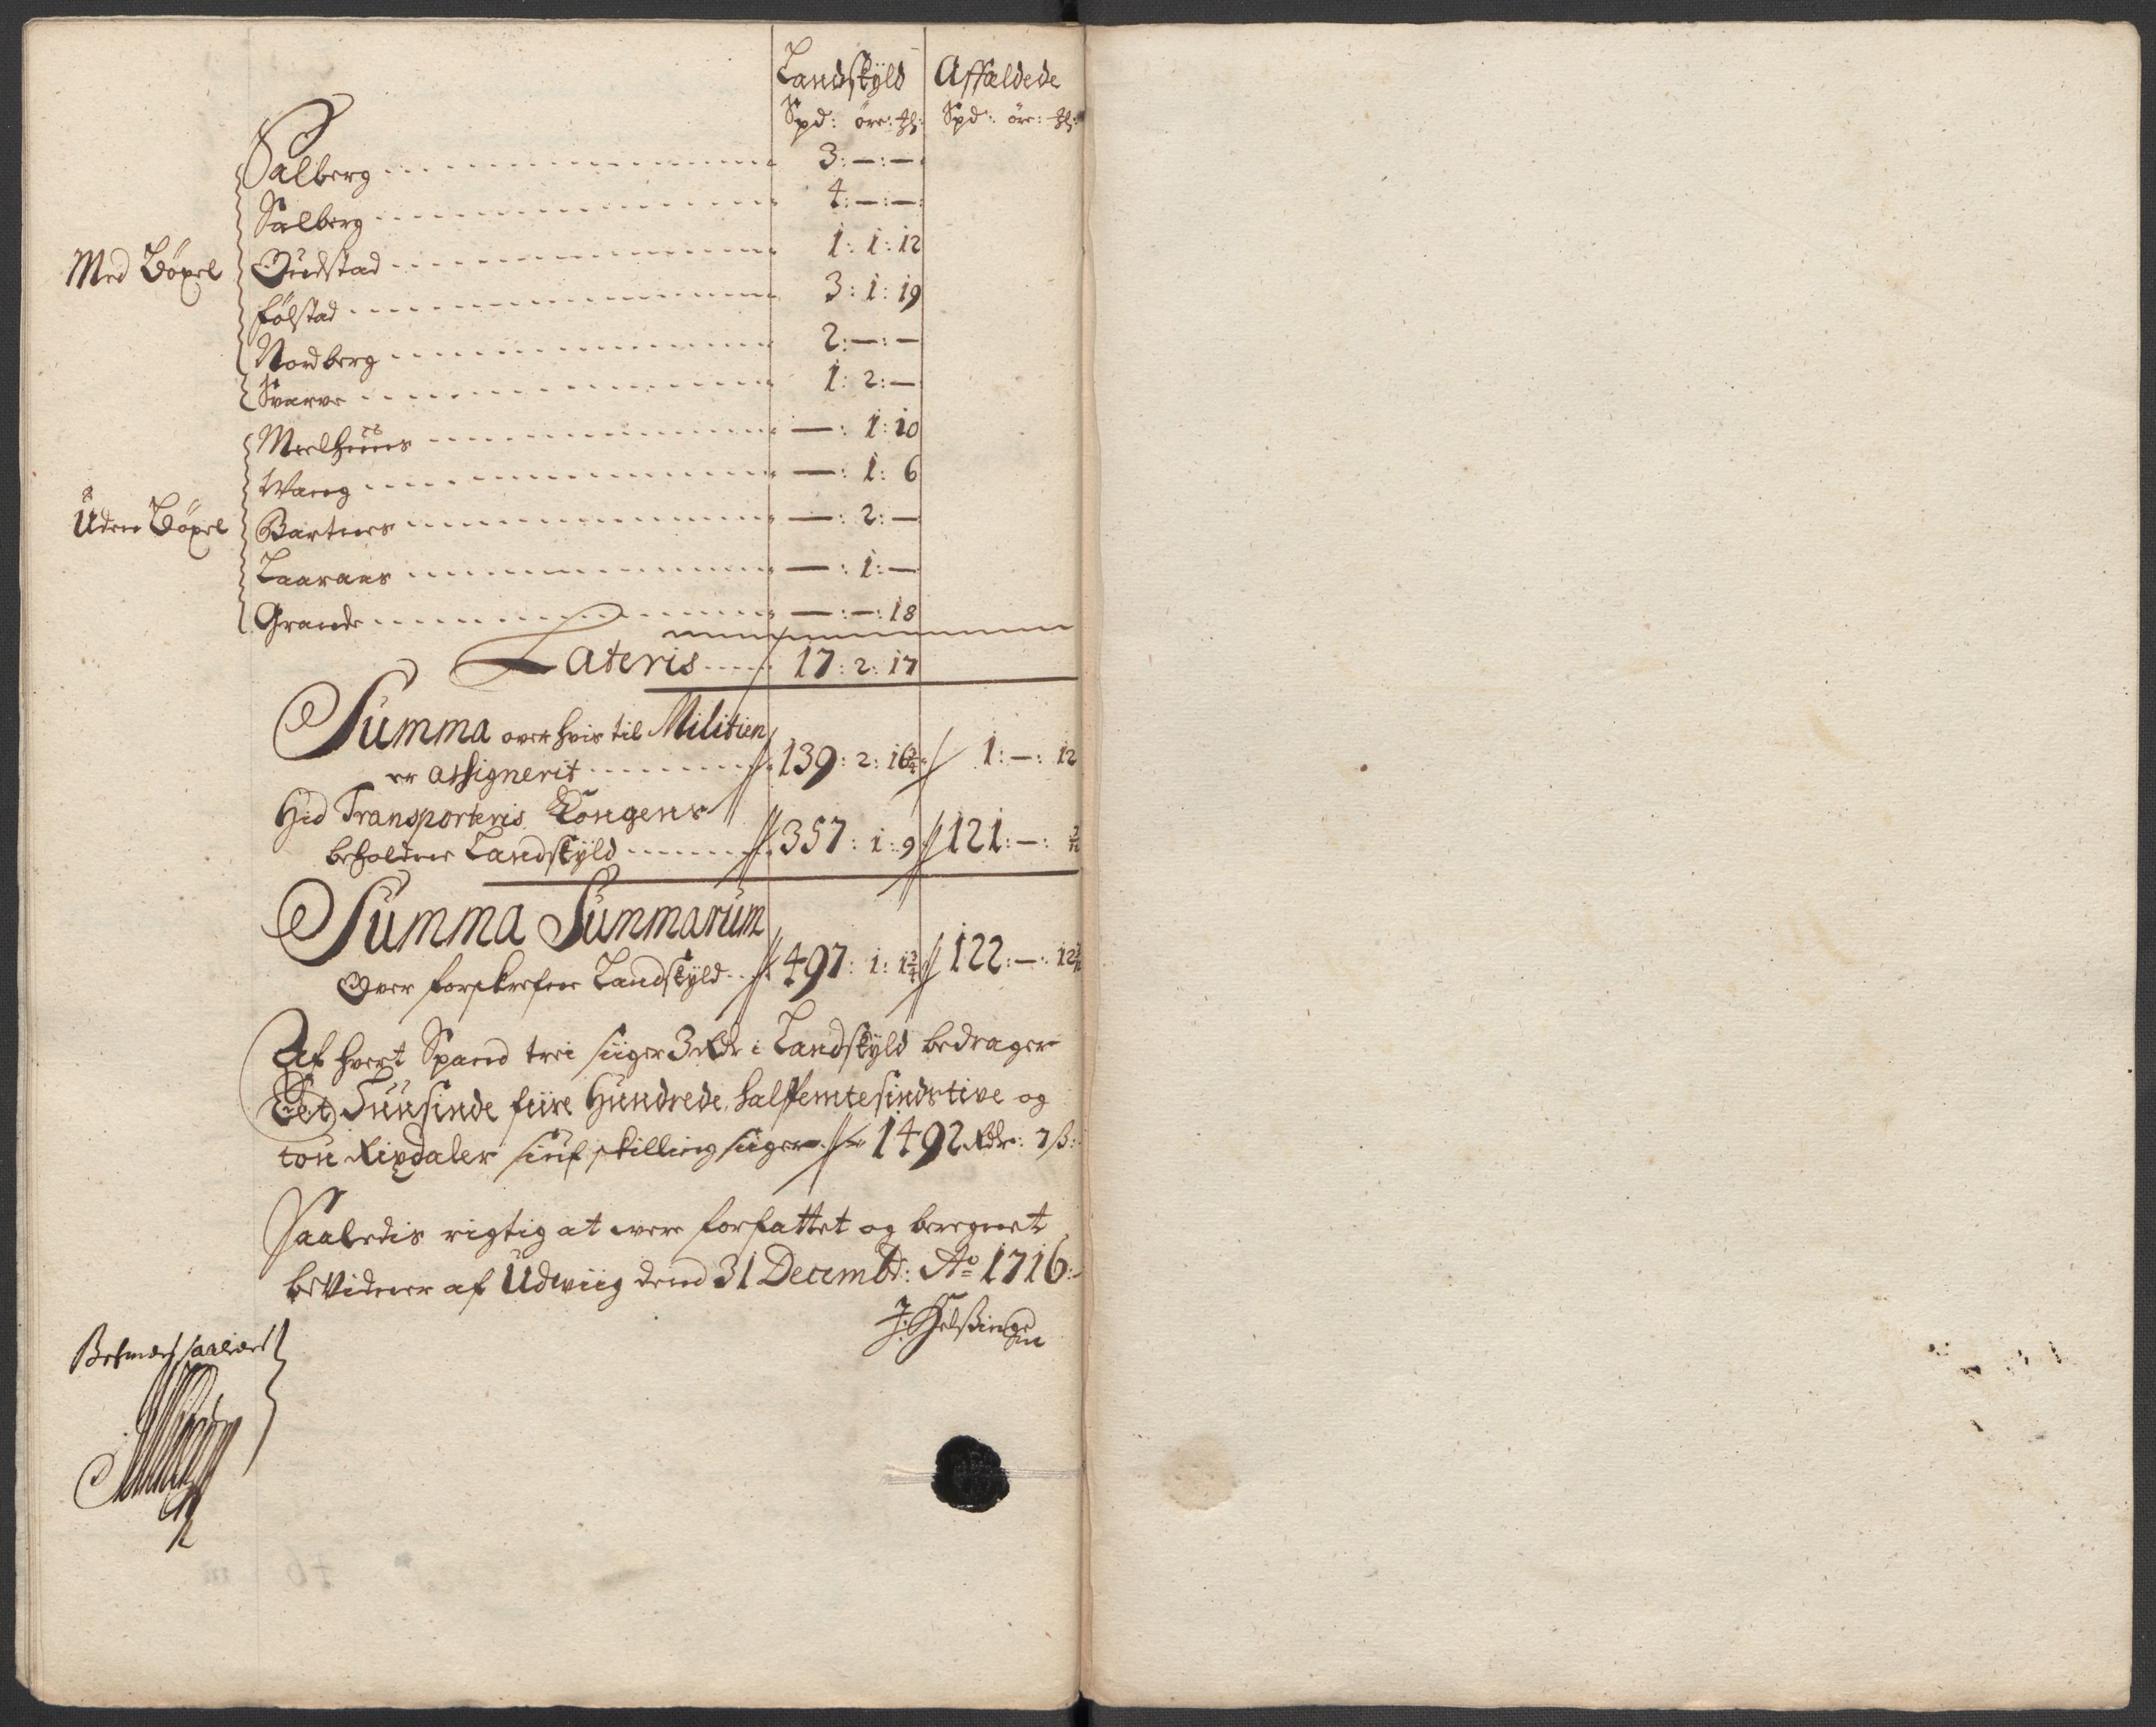 Landskyld Affældede
Spd: öre: ₰: Spd: öre: ₰:
Salberg 3:—:—
Salberg 4:—:—
Med Böxel Oudstad 1: 1: 12
Fölstad 3: 1: 19
Nordberg 2:—:—
Svarve 1: 2:—
Meelhuus —: 1: 10
Wang —: 1: 6
Uden Böxel Bartnes —: 2:—
Laaraas —: 1:—
Grande —:—: 18
Lateris 17: 2: 17
Summa over hvis til Militien
er assignerit 139: 2: 16¾ 1:—: 12
Hid Transporteris Kongens
beholdne Landskyld 357: 1: 9 121:—:
Summa Summarum
Over forskrefne Landskyld 497: 1: 1¾ 122:—: 12
Af hvert Spand trei siiger 3 Rdr i Landskyld bedrager
Eet Tuusinde fiire Hundrede halffemtesindstive og
tou Rixdaler siuf skilling siiger 1492 Rdr: 7 ß:
Saaledis rigtig at were forfattet og beregnet
bevidner af Udwiig dend 31 Decembr: Ao 1716:
J: Helsingen